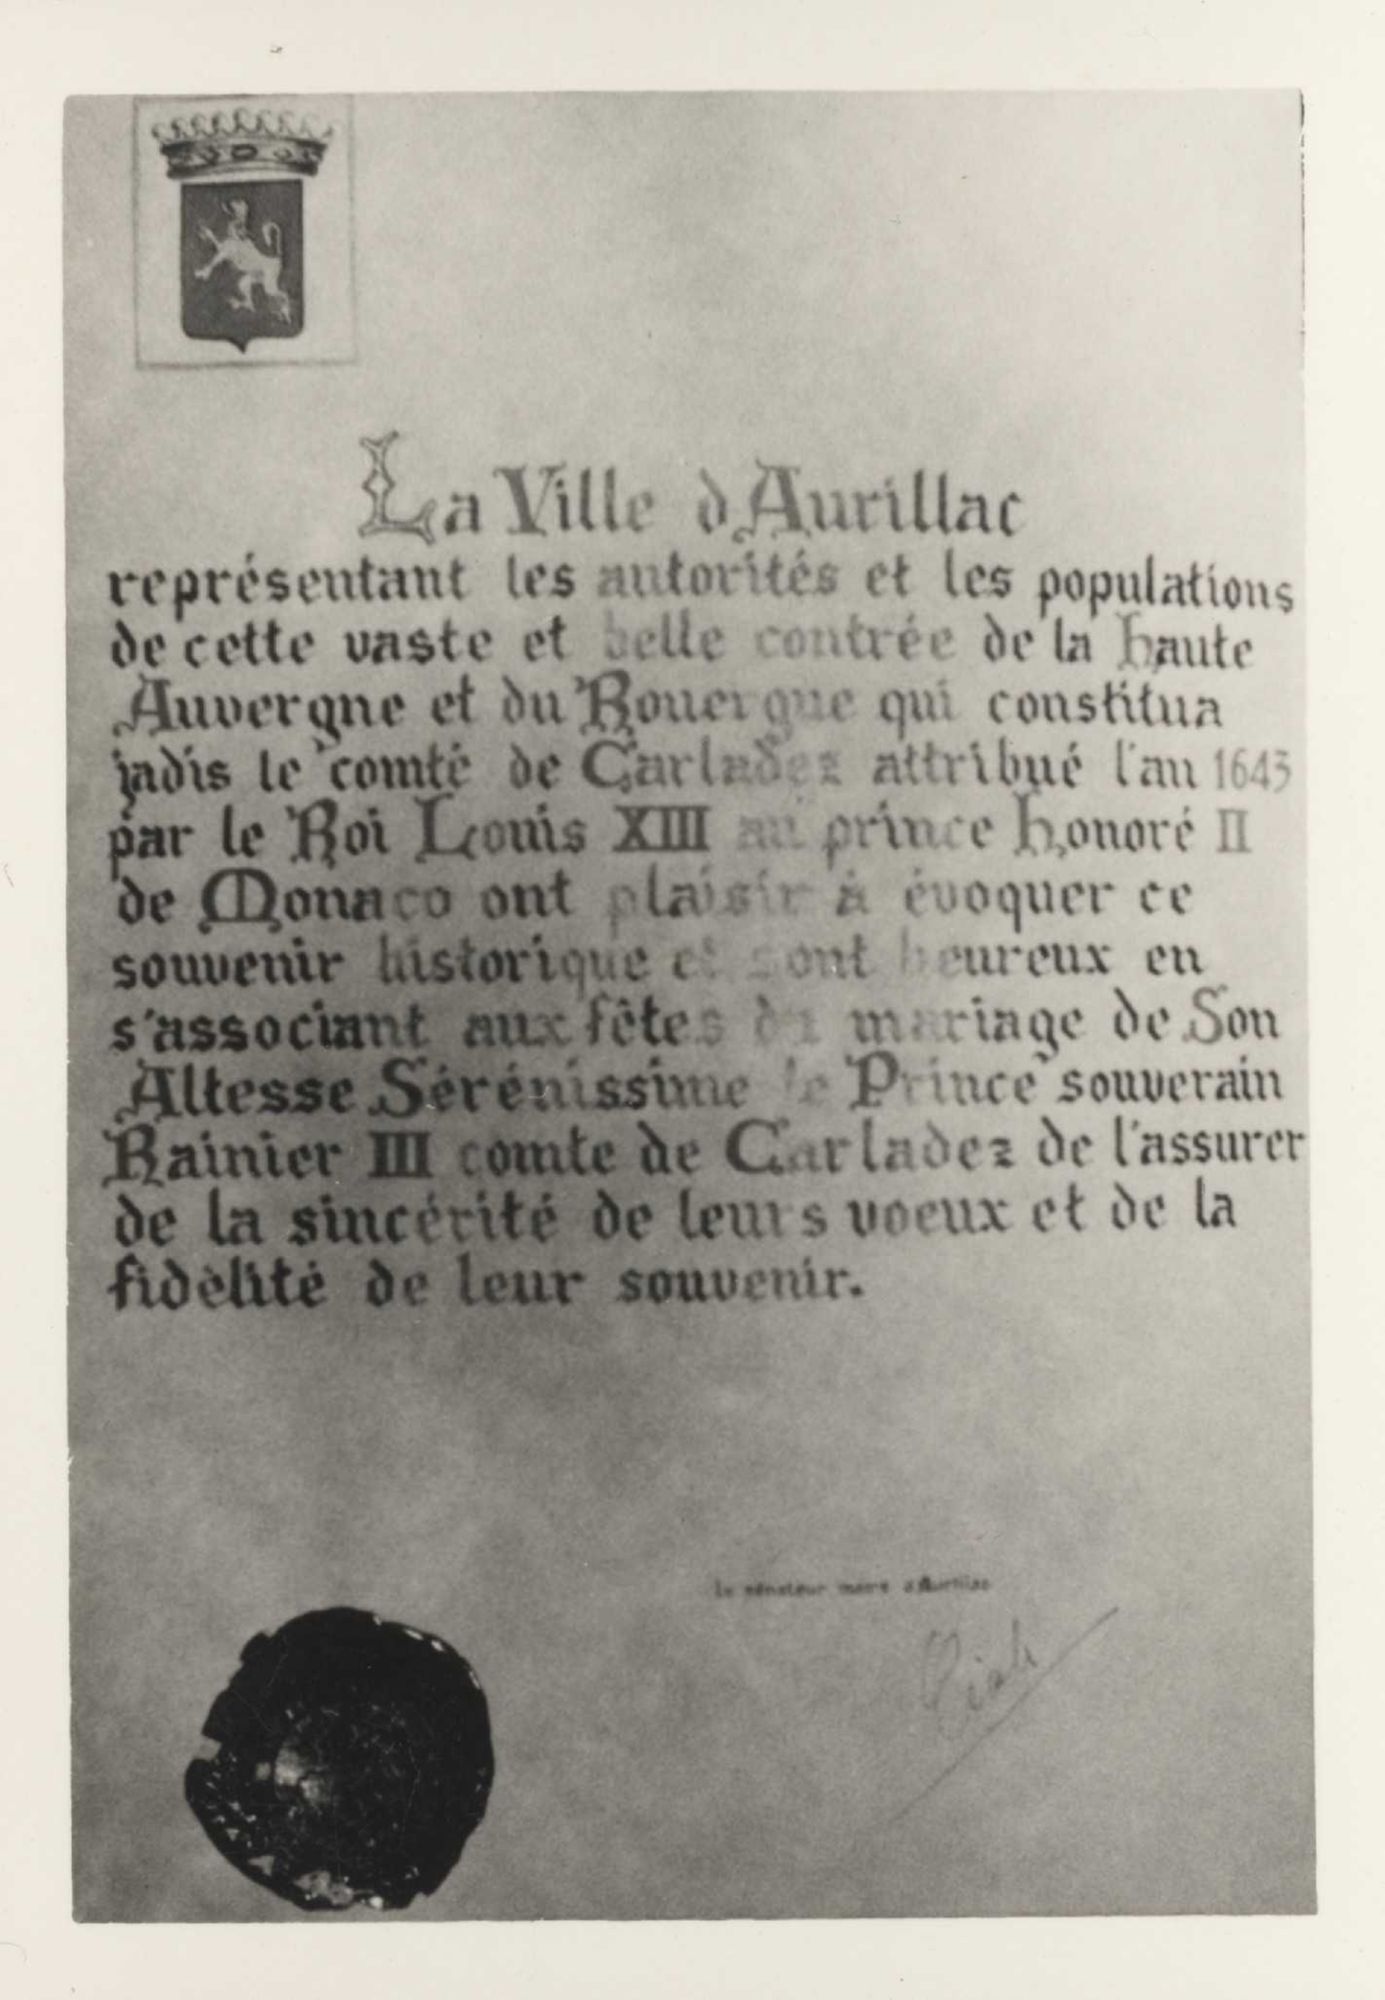 La Ville d'Aurillac
représentant les autorités et les populations
de cette vaste et belle contrée de la haute
Auvergne et du Rouergue qui constitua
jadis le comté de Carladez attribué l'an 1643
par le Roi Louis XIII au prince honoré II
de Monaco ont plaisir à évoquer ce
souvenir historique et sont heureux en
s'associant aux fêtes du mariage de Son
Altesse Sérénissime le Prince souverain
Rainier III comte de Carladez de l'assurer
de la sincérité de leurs voeux et de la
fidélité de leur souvenir.
Le sénateur maire d'Aurillac